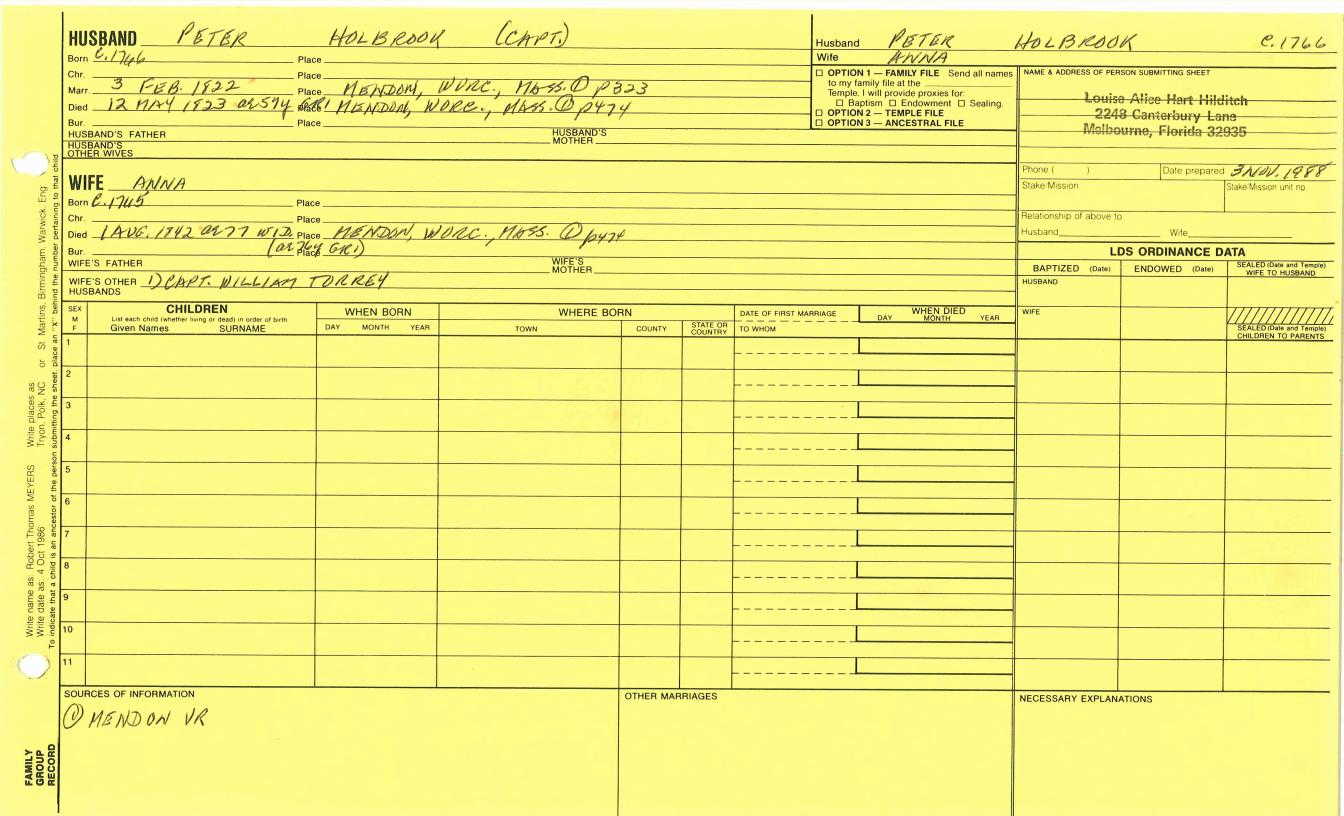 HUSBAND PETER HOLBROOK (CAPT.)
Born C.1766 Place
Chr. Place
Marr. 3 FEB. 1822 Place MENDON, WORC., MASS. ① p323
Died 12 MAY 1823 ae 57y GR1 Place MENDON, WORC., MASS. ① p474
Bur. Place
HUSBAND'S FATHER HUSBAND'S MOTHER
HUSBAND'S OTHER WIVES
Husband PETER HOLBROOK C.1766
Wife ANNA
☐ OPTION 1 — FAMILY FILE Send all names
to my family file at the
Temple. I will provide proxies for:
☐ Baptism ☐ Endowment ☐ Sealing.
☐ OPTION 2 — TEMPLE FILE
☐ OPTION 3 — ANCESTRAL FILE
NAME & ADDRESS OF PERSON SUBMITTING SHEET
Louise Alice Hart Hilditch
2248 Canterbury Lane
Melbourne, Florida 32935
Phone ( ) Date prepared 3 NOV. 1988
Stake/Mission Stake/Mission unit no.
Relationship of above to
Husband Wife
WIFE ANNA
Born C.1765 Place
Chr. Place
Died 1 AUG. 1842 ae 77 WID. Place MENDON, WORC., MASS. ① p474
Bur. (ae 76y GR1) Place
WIFE'S FATHER WIFE'S MOTHER
WIFE'S OTHER HUSBANDS 1) CAPT. WILLIAM TORREY
LDS ORDINANCE DATA
BAPTIZED (Date) ENDOWED (Date) SEALED (Date and Temple) WIFE TO HUSBAND
HUSBAND
WIFE
SEALED (Date and Temple) CHILDREN TO PARENTS
SEX M F
CHILDREN
List each child (whether living or dead) in order of birth
Given Names SURNAME
WHEN BORN
DAY MONTH YEAR
WHERE BORN
TOWN COUNTY STATE OR COUNTRY
DATE OF FIRST MARRIAGE
TO WHOM
WHEN DIED
DAY MONTH YEAR
1
2
3
4
5
6
7
8
9
10
11
SOURCES OF INFORMATION
① MENDON VR
OTHER MARRIAGES
NECESSARY EXPLANATIONS
Write name as: Robert Thomas MEYERS Write places as: Tryon, Polk, NC or St. Martins, Birmingham, Warwick, Eng.
Write date as: 4 Oct 1986
To indicate that a child is an ancestor of the person submitting the sheet, place an "X" behind the number pertaining to that child.
FAMILY GROUP RECORD